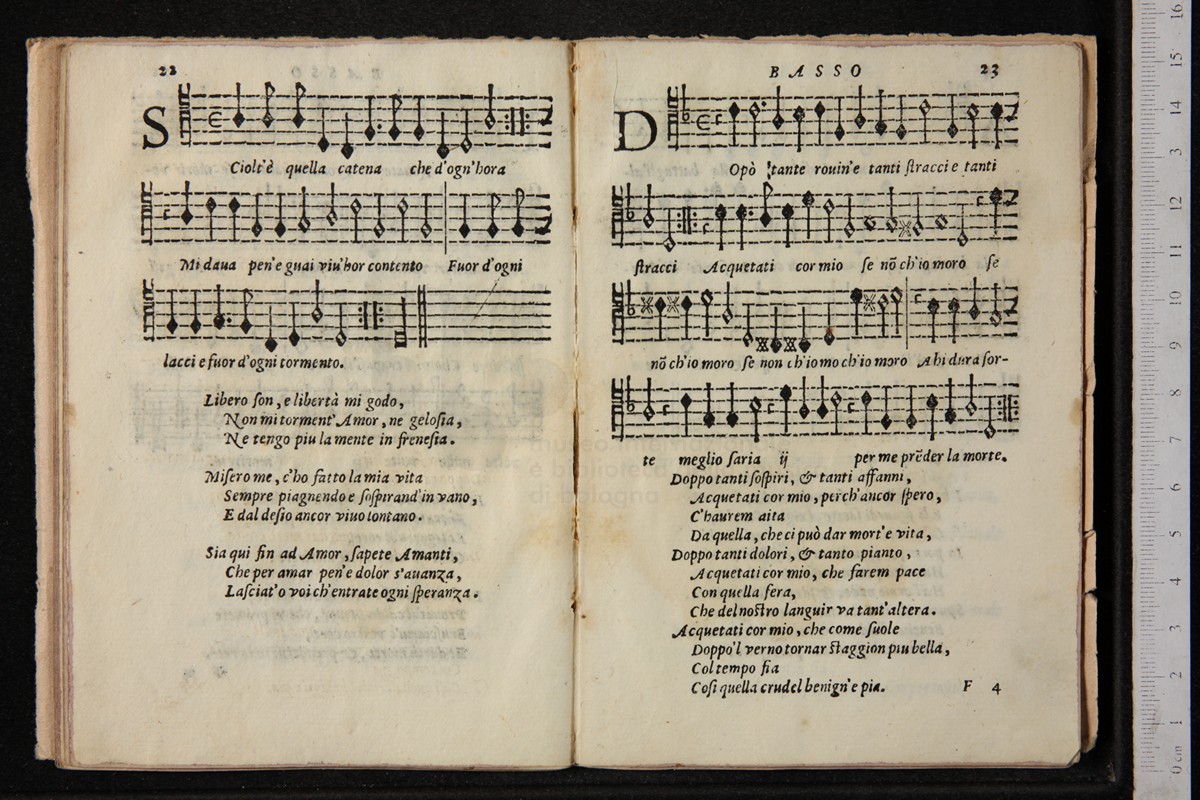 22
SCiolt'è quella catena che d'ogn'hora
Mi daua pen'e guai viu'hor contento Fuor d'ogni
lacci e fuor d'ogni tormento.
Libero son, e libertà mi godo,
Non mi torment'Amor, ne gelosia,
Ne tengo piu la mente in frenesia.
Misero me, c'ho fatto la mia vita
Sempre piagnendo e sospirand'in vano,
E dal desio ancor viuo lontano.
Sia qui fin ad Amor, sapete Amanti,
Che per amar pen'e dolor s'auanza,
Lasciat'o voi ch'entrate ogni speranza.
BASSO 23
DOpò tante rouin'e tanti stracci e tanti
stracci Acquetati cor mio se nõ ch'io moro se
nõ ch'io moro se non ch'io mo ch'io moro Ahi dura sor-
te meglio saria ij per me prẽder la morte.
Doppo tanti sospiri, & tanti affanni,
Acquetati cor mio, perch'ancor spero,
C'haurem aita
Da quella, che ci può dar mort'e vita,
Doppo tanti dolori, & tanto pianto,
Acquetati cor mio, che farem pace
Con quella fera,
Che del nostro languir va tant'altera.
Acquetati cor mio, che come suole
Doppo'l verno tornar staggion piu bella,
Col tempo fia
Cosi quella crudel benign'e pia.
F 4
museo
e biblioteca
di bologna
0 cm 1 2 3 4 5 6 7 8 9 10 11 12 13 14 15 16